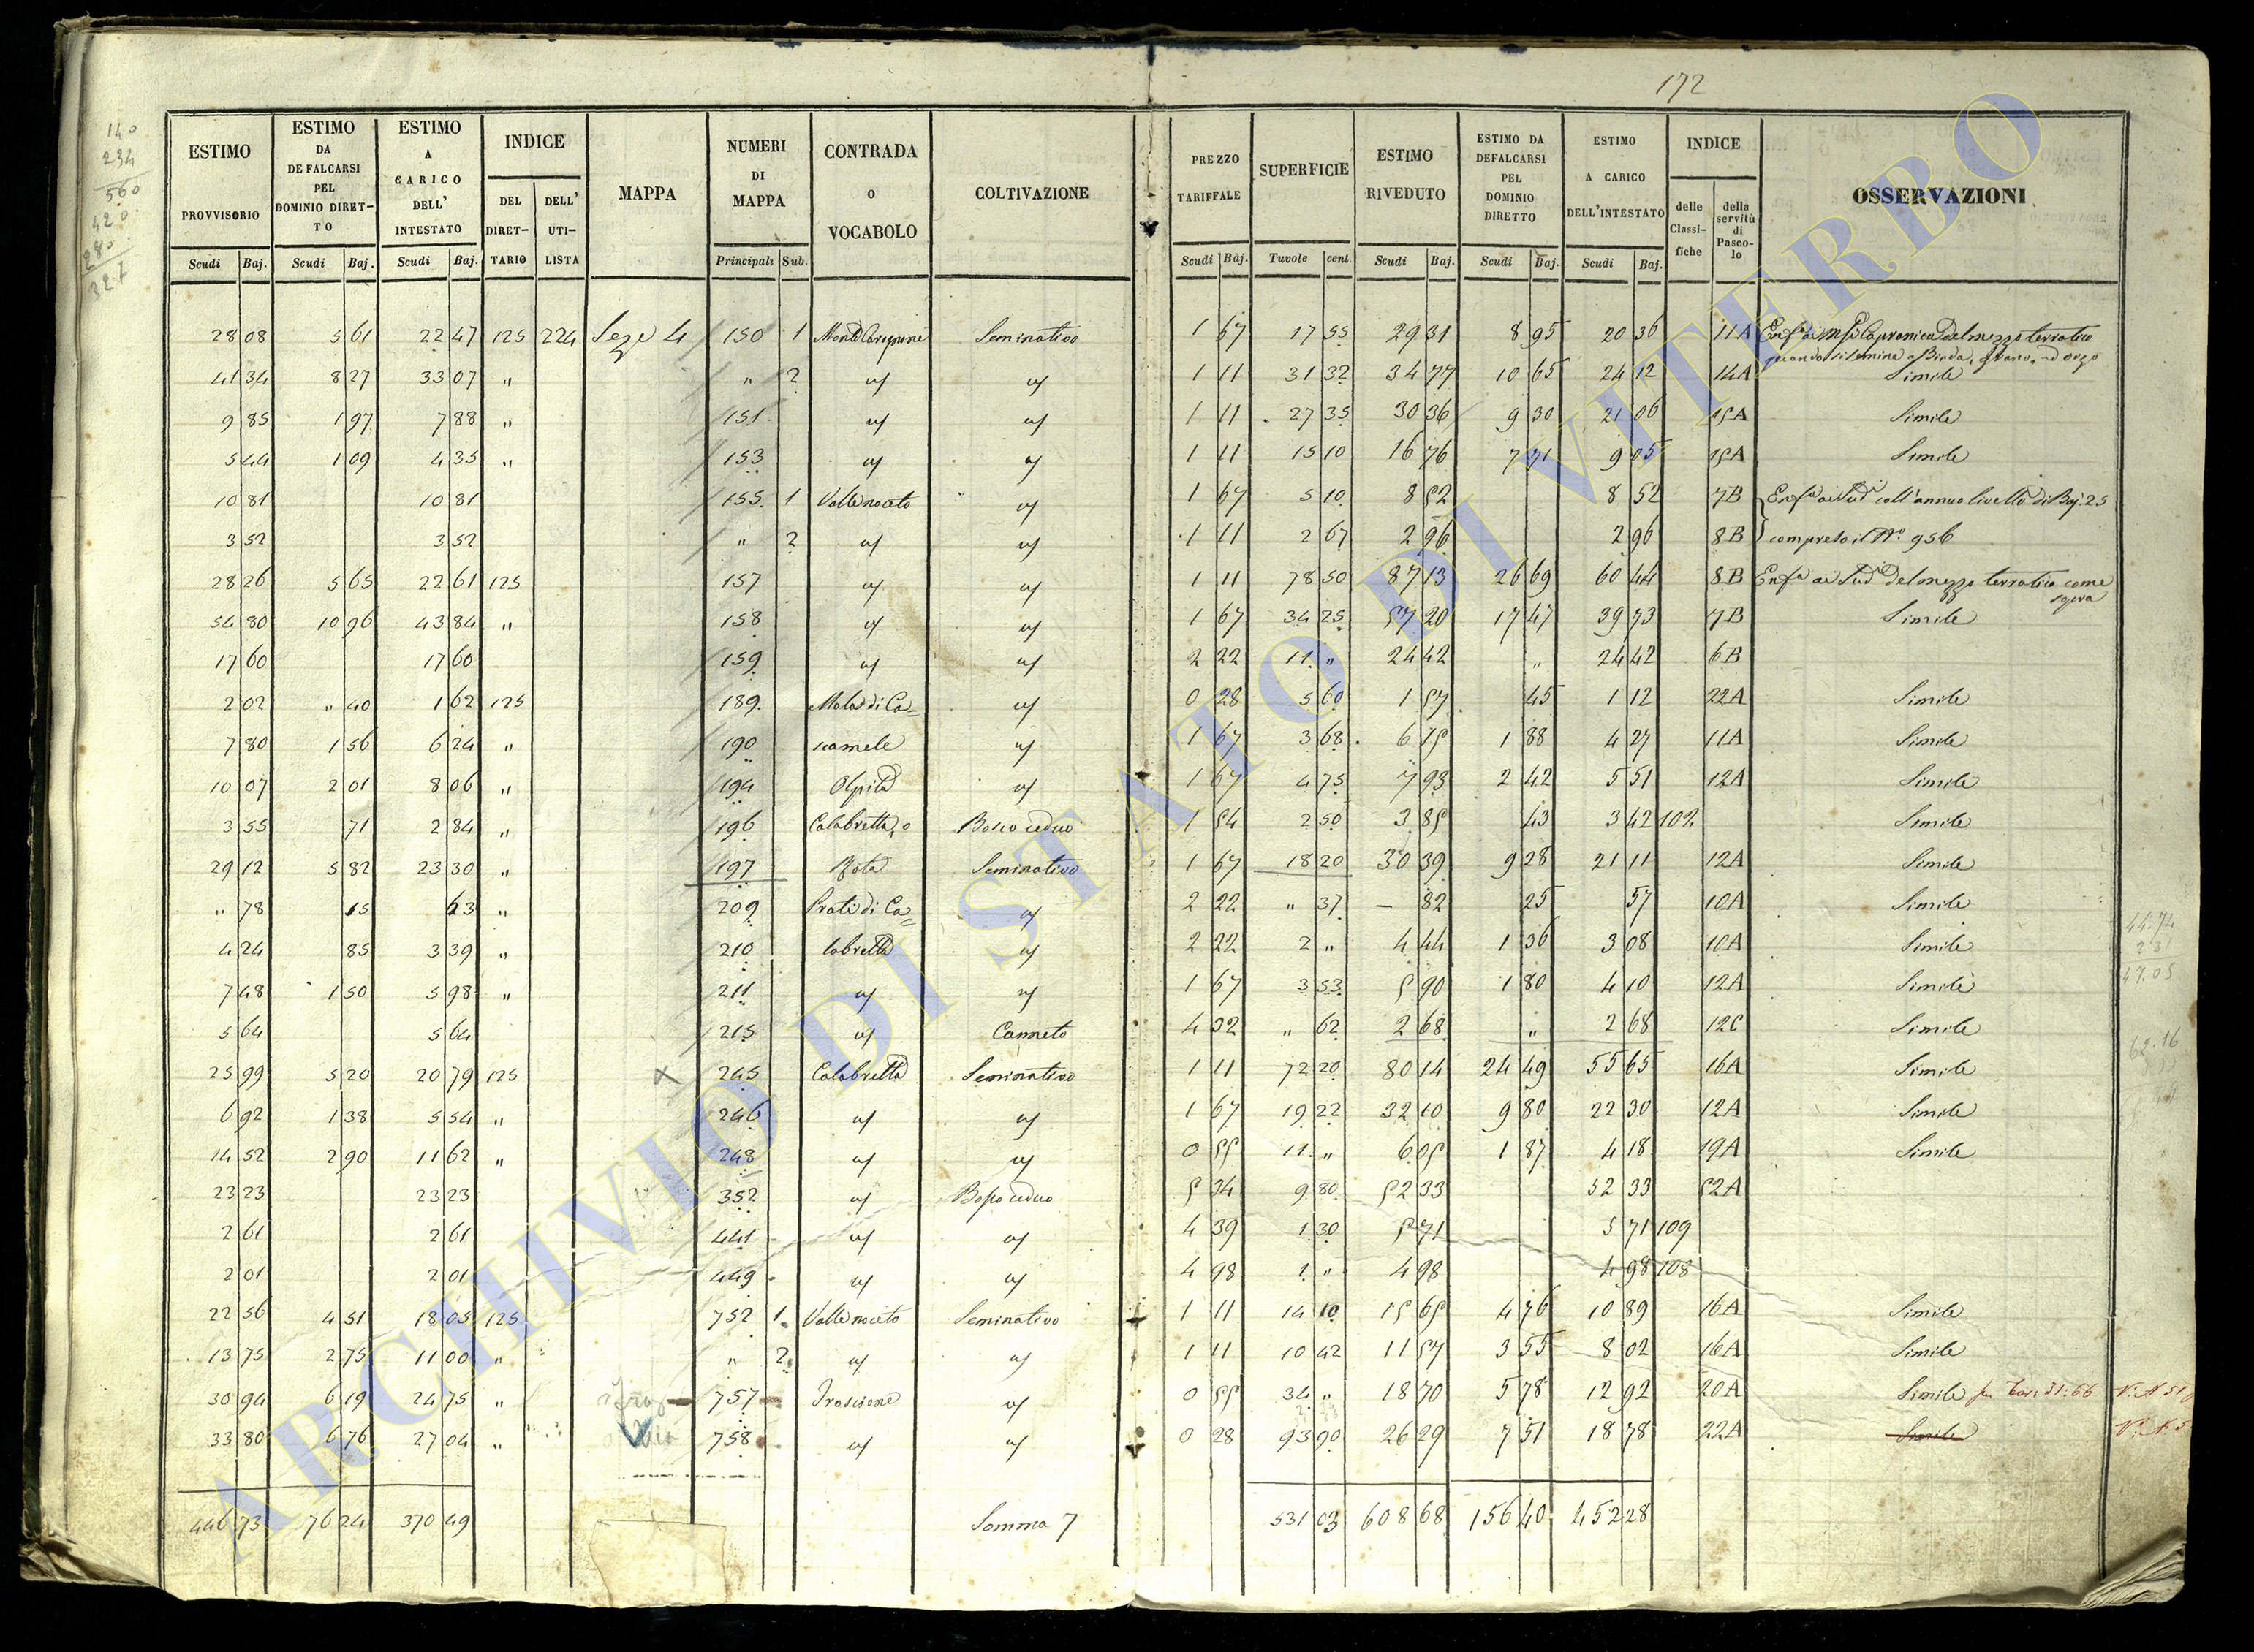 172
140
234
560
420
280
327
ESTIMO PROVVISORIO Scudi Baj.
ESTIMO DA DEFALCARSI PEL DOMINIO DIRET-TO Scudi Baj.
ESTIMO A CARICO DELL' INTESTATO Scudi Baj.
INDICE DEL DIRET-TARIO DELL' UTI-LISTA
MAPPA
NUMERI DI MAPPA Principali Sub.
CONTRADA o VOCABOLO
COLTIVAZIONE
PREZZO TARIFFALE Scudi Baj.
SUPERFICIE Tavole cent.
ESTIMO RIVEDUTO Scudi Baj.
ESTIMO DA DEFALCARSI PEL DOMINIO DIRETTO Scudi Baj.
ESTIMO A CARICO DELL'INTESTATO Scudi Baj.
INDICE delle Classi-fiche della servitù di Pasco-lo
OSSERVAZIONI
28 08 5 61 22 47 125 224 Seze 4 150 1 Seminativo 1 67 17 55 29 31 8 95 20 36 11A del mezzo terratico
quando si semina a Biada, Grano, ed orzo
41 34 8 27 33 07 " " 2 " " 1 11 31 32 34 77 10 65 24 12 14A Simile
9 85 1 97 7 88 " 151 " " 1 11 27 35 30 36 9 30 21 06 15A Simile
5 44 1 09 4 35 " 153 " " 1 11 15 10 16 76 7 71 9 05 15A Simile
10 81 10 81 155 1 Valle noceto " 1 67 5 10 8 52 8 52 7B coll'annuo livello di Baj. 25
3 52 3 52 " 2 " " 1 11 2 67 2 96 2 96 8B compreso il N.° 956
28 26 5 65 22 61 125 157 " " 1 11 78 50 87 13 26 69 60 44 8B del mezzo terratico come
sopra
54 80 10 96 43 84 " 158 " " 1 67 34 25 57 20 17 47 39 73 7B Simile
17 60 17 60 159 " " 2 22 11 " 24 42 " 24 42 6B
2 02 " 40 1 62 125 189 Mola di Ca= " 0 28 5 60 1 57 45 1 12 22A Simile
7 80 1 56 6 24 " 190 camele " 1 67 3 68 6 15 1 88 4 27 11A Simile
10 07 2 01 8 06 " 194 " 1 67 4 75 7 93 2 42 5 51 12A Simile
3 55 71 2 84 " 196 Calabretta, o Bosco ceduo 1 54 2 50 3 85 43 3 42 102 Simile
29 12 5 82 23 30 " 197 Rota Seminativo 1 67 18 20 30 39 9 28 21 11 12A Simile
" 78 15 63 " 209 Prati di Ca= " 2 22 " 37 – 82 25 57 10A Simile
4 24 85 3 39 " 210 labretta " 2 22 2 " 4 44 1 36 3 08 10A Simile
7 48 1 50 5 98 " 211 " " 1 67 3 53 5 90 1 80 4 10 12A Simile
5 64 5 64 215 " Canneto 4 32 " 62 2 68 " 2 68 12C Simile
25 99 5 20 20 79 125 x 245 Calabretta Seminativo 1 11 72 20 80 14 24 49 55 65 16A Simile
6 92 1 38 5 54 " 246 " " 1 67 19 22 32 10 9 80 22 30 12A Simile
14 52 2 90 11 62 " 248 " " 0 55 11 " 6 05 1 87 4 18 19A Simile
23 23 23 23 352 " Bosco ceduo 5 34 9 80 52 33 52 33 52A
2 61 2 61 441 " " 4 39 1 30 5 71 5 71 109
2 01 2 01 449 " " 4 98 1 " 4 98 4 98 108
22 56 4 51 18 05 125 752 1 Valle noceto Seminativo 1 11 14 10 15 65 4 76 10 89 16A Simile
13 75 2 75 11 00 " " 2 " " 1 11 10 42 11 57 3 55 8 02 16A Simile
30 94 6 19 24 75 " 757 Troscione " 0 55 34 " 18 70 5 78 12 92 20A Simile
33 80 6 76 27 04 " 758 " " 0 28 93 90 26 29 7 51 18 78 22A Simile
446 73 76 24 370 49 Somma 7 531 03 608 68 156 40 452 28
44.74
2 31
47.05
62.16
ARCHIVIO DI STATO DI VITERBO